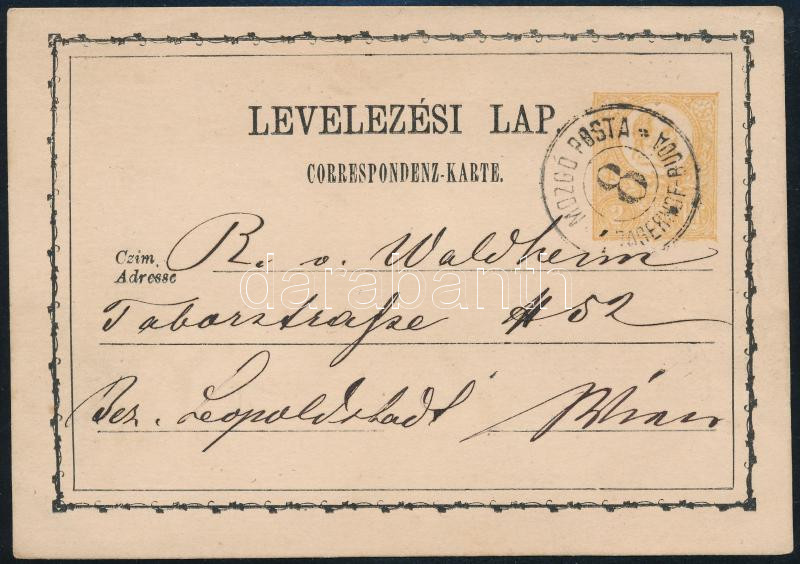 LEVELEZÉSI LAP.
CORRESPONDENZ-KARTE.
MOZGÓ POSTA
8
Czim.
Adresse
R. v. Waldheim
Taborstraße # 52
Bez. Leopoldstadt Wien
darabanth